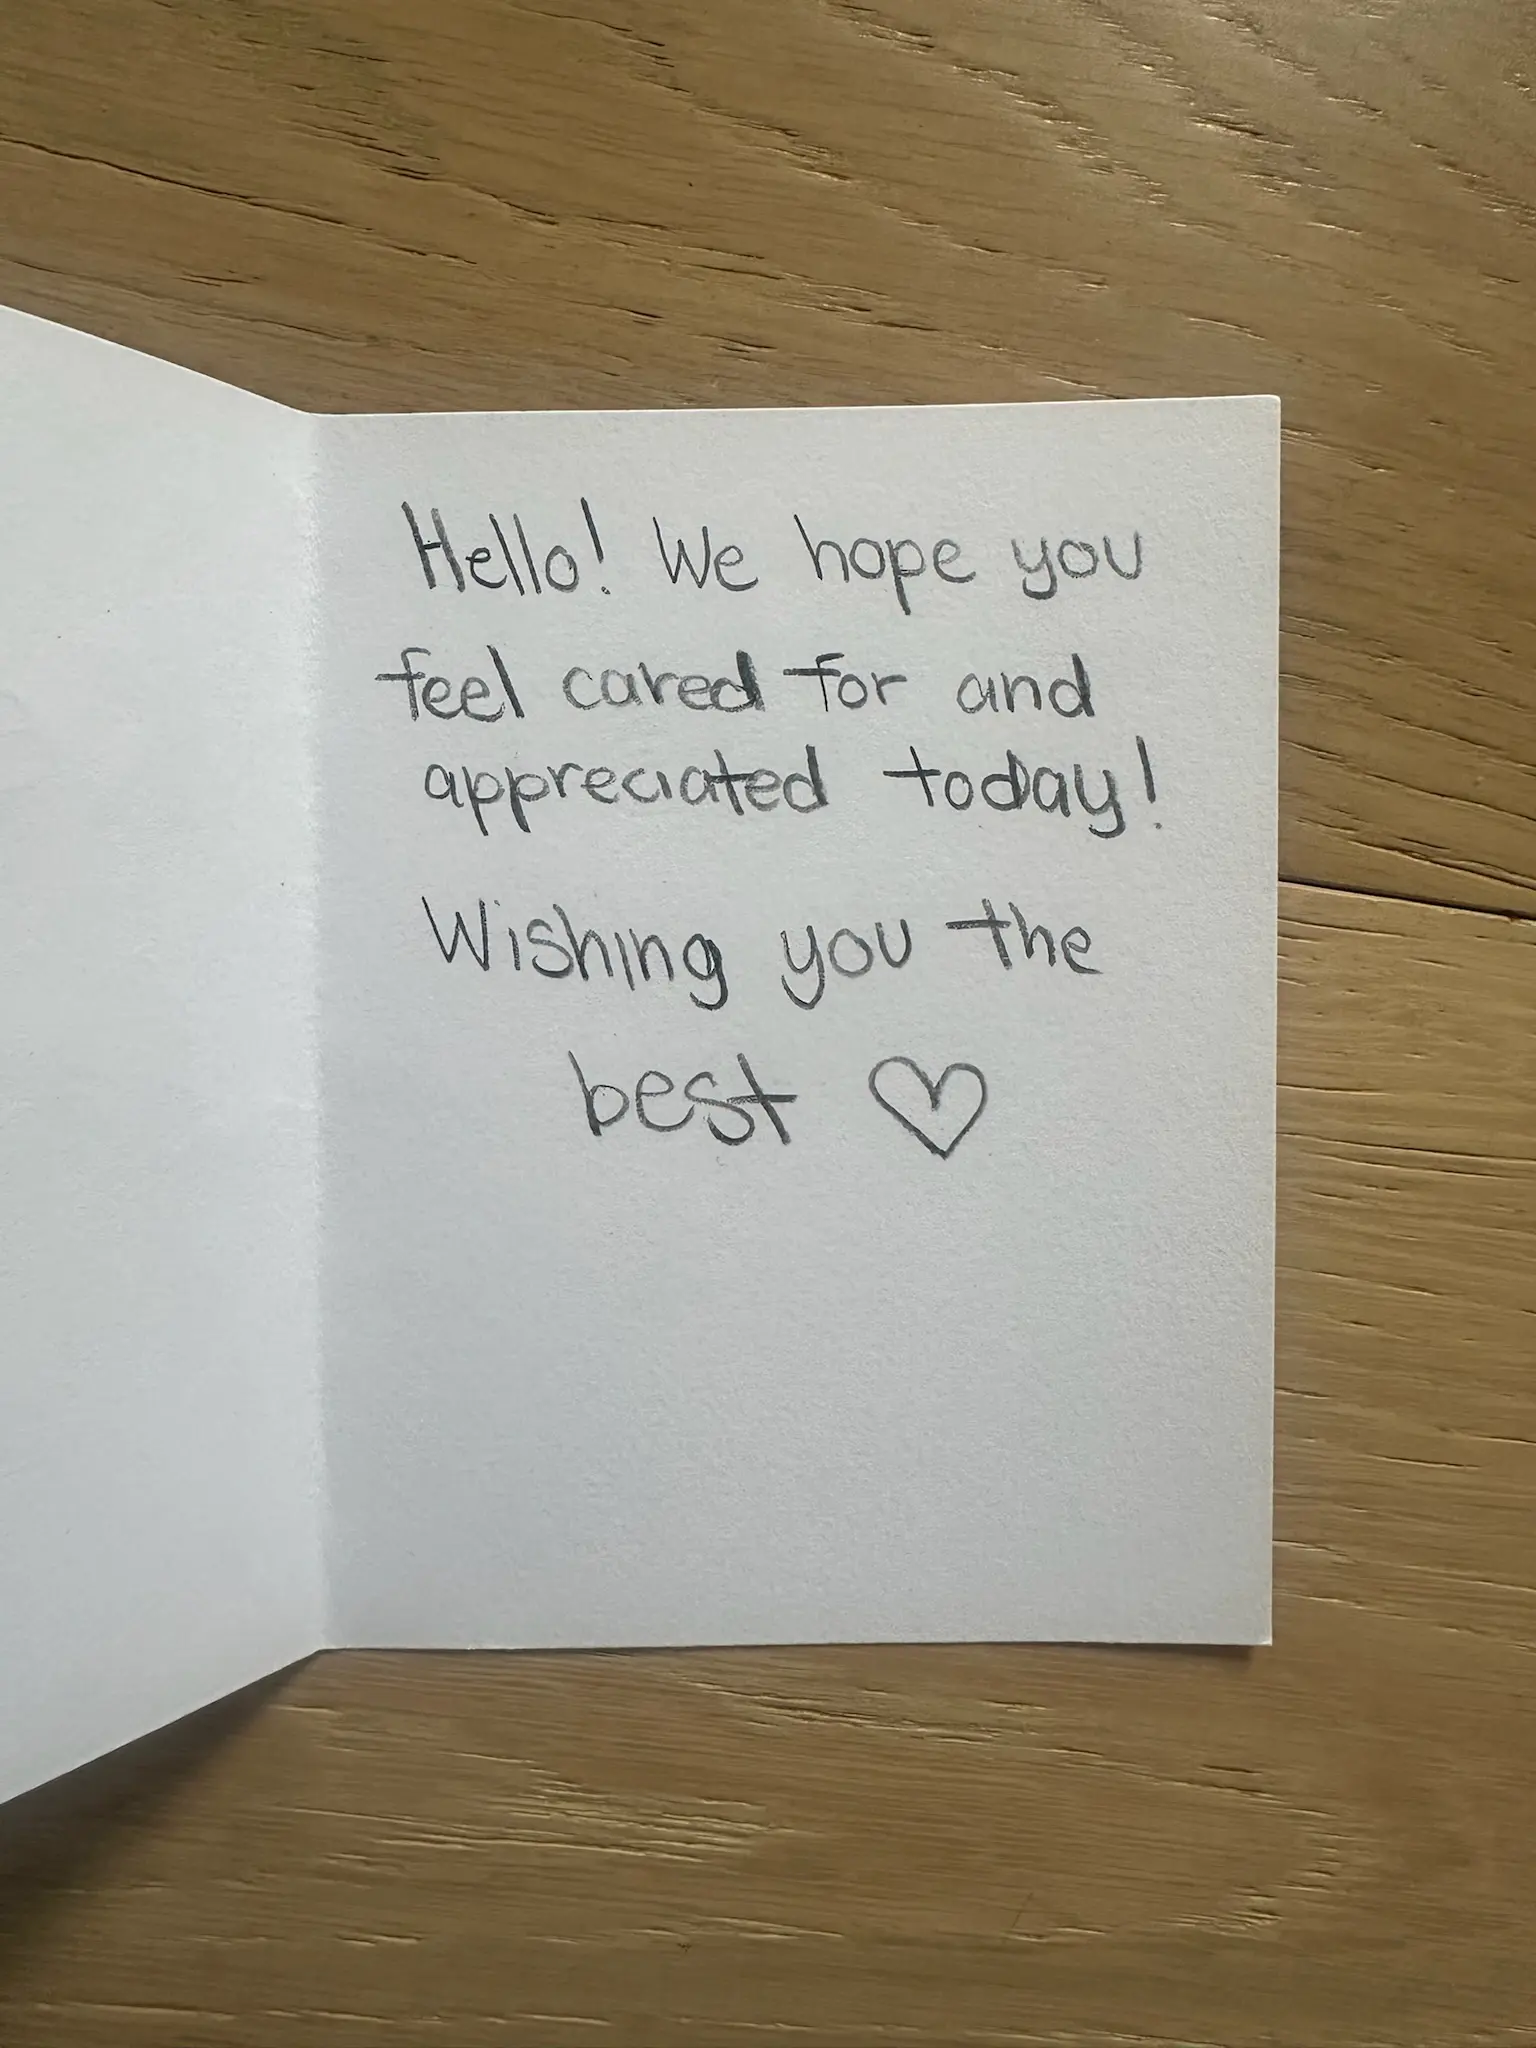 Hello! We hope you
feel cared for and
appreciated today!
Wishing you the
best ♡